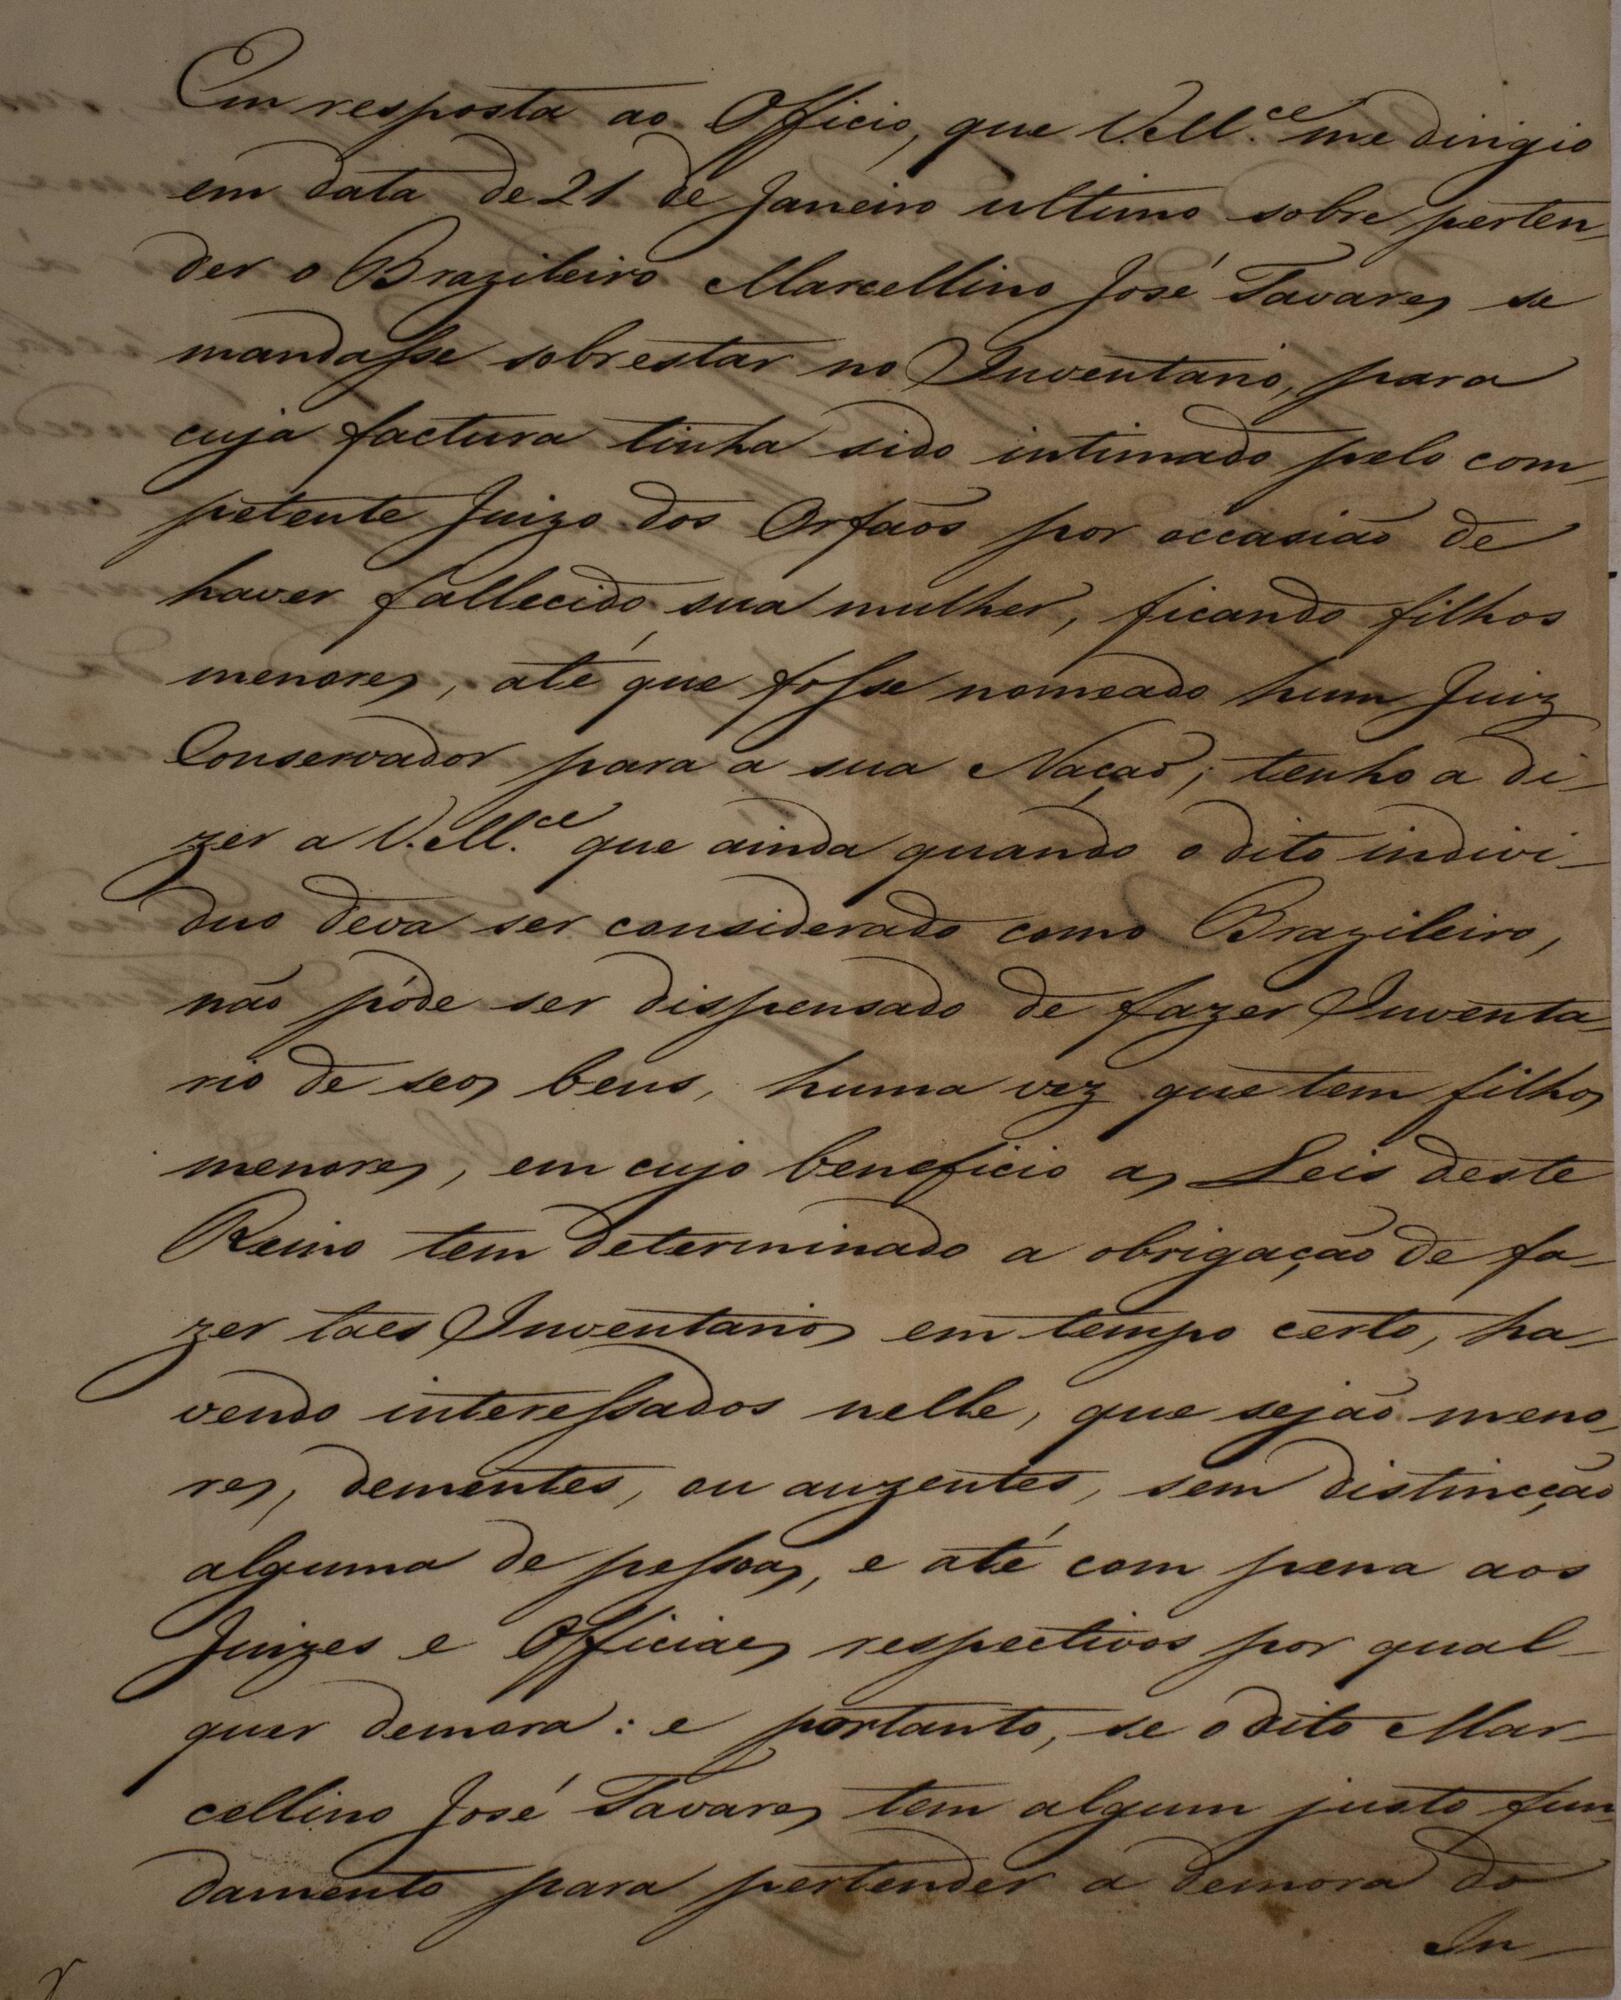 Em resposta ao Officio, que V.M.ce me dirigio
em data de 21 de Janeiro ultimo sobre perten-
der o Brazileiro Marcellino José Tavares se
mandasse sobrestar no Inventario, para
cuja factura tinha sido intimado pelo com-
petente Juizo dos Orfãos por occasião de
haver fallecido sua mulher, ficando filhos
menores, até que fosse nomeado hum Juiz
Conservador para a sua Nação; tenho a di-
zer a V.M.ce que ainda quando o dito indivi-
duo deva ser considerado como Brazileiro,
não póde ser dispensado de fazer Inventa-
rio de seos bens, huma vez que tem filhos
menores, em cujo beneficio as Leis deste
Reino tem determinado a obrigação de fa-
zer taes Inventarios em tempo certo, ha-
vendo interessados nelle, que sejão meno-
res, dementes, ou auzentes, sem distincção
alguma de pessoas, e até com pena aos
Juizes e Officiaes respectivos por qual-
quer demora: e portanto, se o dito Mar-
cellino José Tavares tem algum justo fun-
damento para pertender a demora do
In-